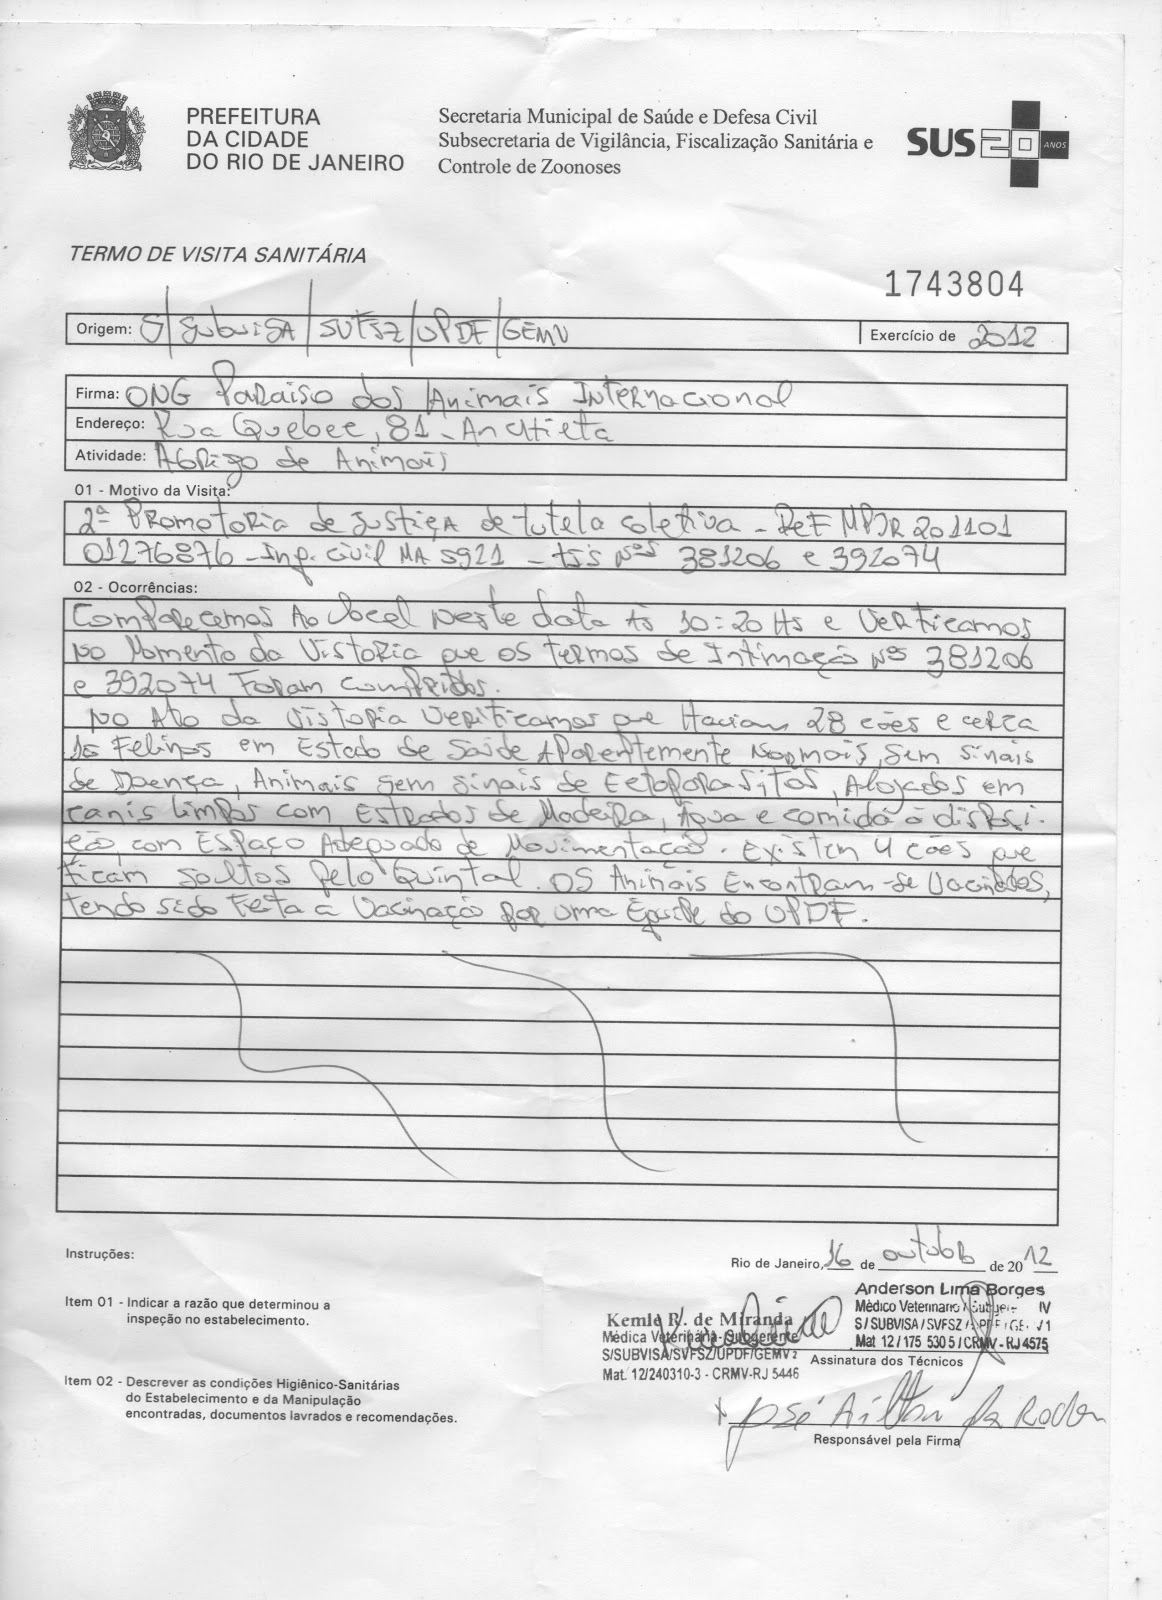 PREFEITURA
DA CIDADE
DO RIO DE JANEIRO
Secretaria Municipal de Saúde e Defesa Civil
Subsecretaria de Vigilância, Fiscalização Sanitária e
Controle de Zoonoses
SUS 20 ANOS
TERMO DE VISITA SANITÁRIA
1743804
Origem: S/SubvisA/SVFSZ/UPDF/GEMV
Exercício de 2012
Firma: ONG Paraiso dos Animais Internacional
Endereço: Rua Quebec, 81 - Anchieta
Atividade: Abrigo de Animais
01 - Motivo da Visita:
2ª Promotoria de Justiça de tutela coletiva - Ref MPJR 201101
01276876 - Inq. civil MA 5921 - tis Nºs 381206 e 392074
02 - Ocorrências:
Comparecemos Ao local neste data às 10:20 Hs e Verificamos
no Momento da Vistoria que os termos de Intimação Nºs 381206
e 392074 Foram cumpridos.
No Ato da Vistoria Verificamos que Haviam 28 cães e cerca
10 Felinos em Estado de Saúde Aparentemente Normais, sem sinais
de Doença, Animais sem sinais de Ectoparasitos, Alojados em
canis limpos com Estrados de Madeira, Água e comida à disposi-
ção, com Espaço Adequado de Movimentação. Existem 4 cães que
ficam soltos pelo Quintal. Os Animais Encontram-se Vacinados,
tendo sido Feita a Vacinação por uma Equipe do UPDF.
Instruções:
Rio de Janeiro, 16 de outubro de 2012
Item 01 - Indicar a razão que determinou a
inspeção no estabelecimento.
Anderson Lima Borges
Médico Veterinário
S/SUBVISA/SVFSZ/UPDF/GEMV1
Mat 12/175 530 5/CRMV-RJ 4575
Kemle R. de Miranda
Médica Veterinária-Subgerente
S/SUBVISA/SVFSZ/UPDF/GEMV2
Mat. 12/240310-3 - CRMV-RJ 5446
Assinatura dos Técnicos
Item 02 - Descrever as condições Higiênico-Sanitárias
do Estabelecimento e da Manipulação
encontradas, documentos lavrados e recomendações.
José Ailton da
Responsável pela Firma